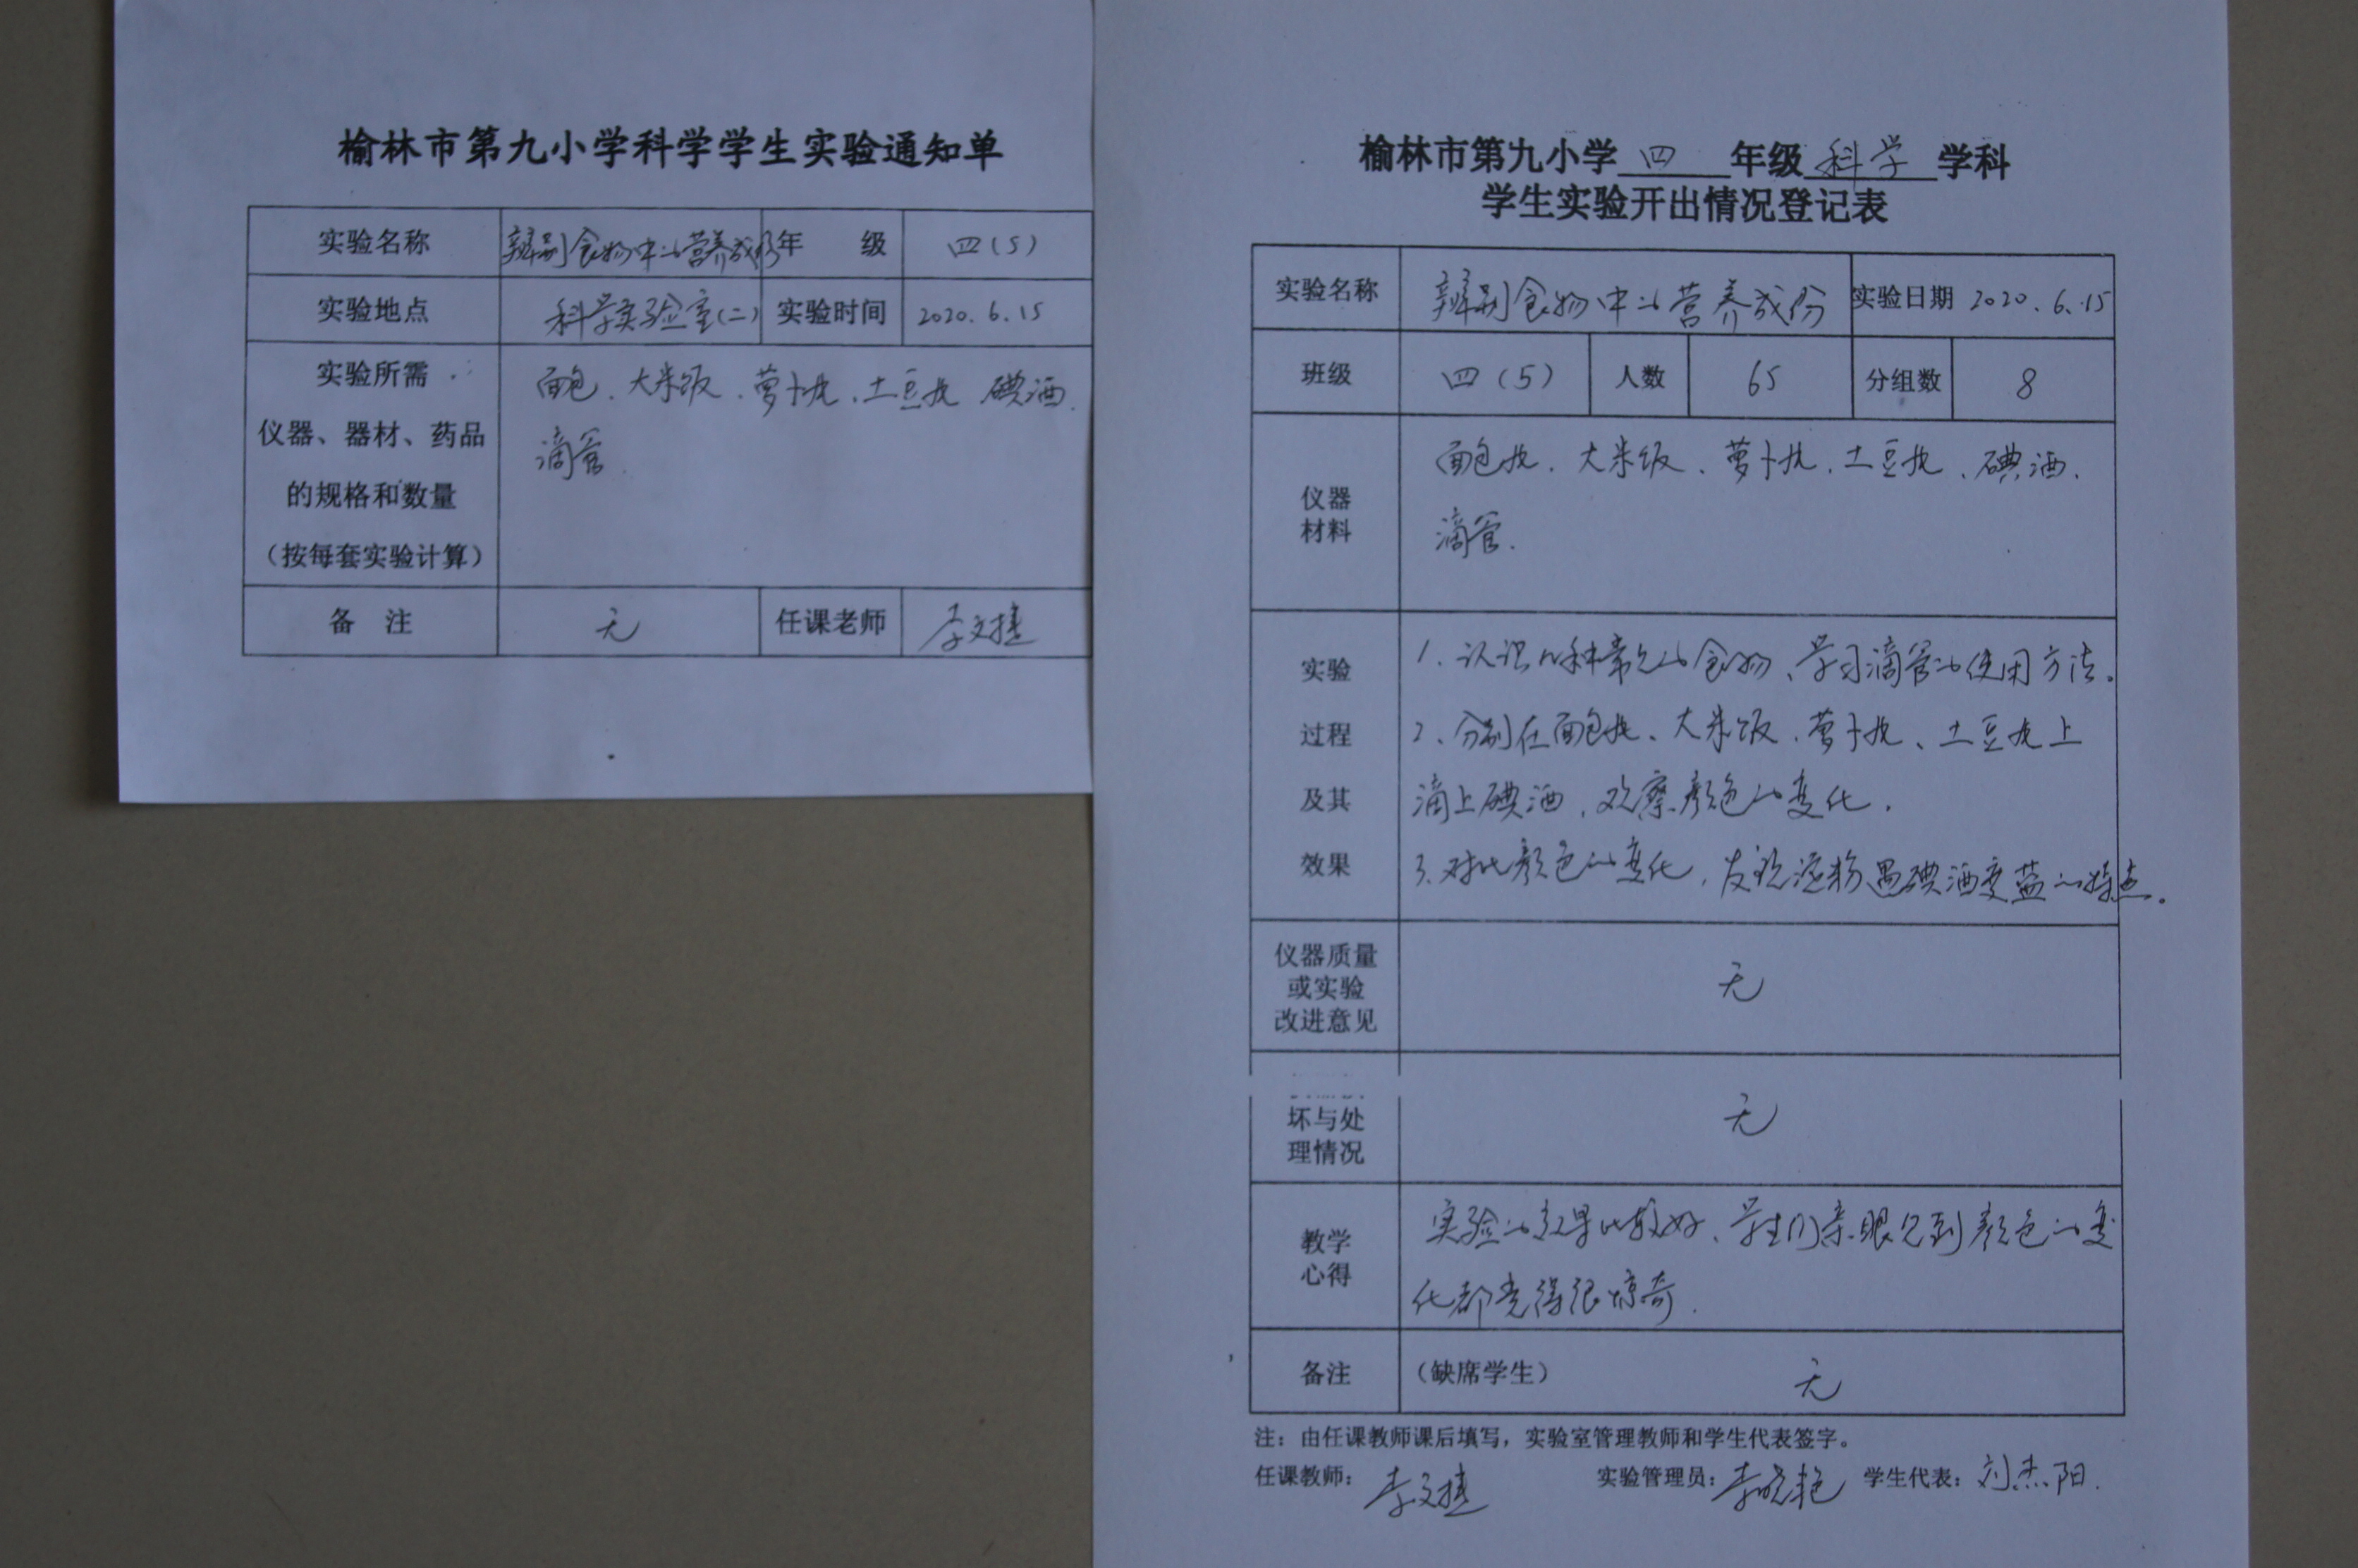 榆林市第九小学科学学生实验通知单
实验名称 辨别食物中的营养成份 年 级 四(5)
实验地点 科学实验室(二) 实验时间 2020.6.15
实验所需
仪器、器材、药品
的规格和数量
(按每套实验计算)
面包、大米饭、萝卜丸、土豆丸 碘酒、
滴管
备 注 无 任课老师 李文捷
榆林市第九小学 四 年级 科学 学科
学生实验开出情况登记表
实验名称 辨别食物中的营养成份 实验日期 2020.6.15
班级 四(5) 人数 65 分组数 8
仪器
材料
面包丸、大米饭、萝卜丸、土豆丸、碘酒、
滴管.
实验
过程
及其
效果
1、认识几种常见的食物、学习滴管的使用方法。
2、分别在面包丸、大米饭、萝卜丸、土豆丸上
滴上碘酒,观察颜色的变化.
3、对比颜色的变化,发现淀粉遇碘酒变蓝的特点。
仪器质量
或实验
改进意见
无
坏与处
理情况
无
教学
心得
实验的效果比较好、学生们亲眼见到颜色的变
化都觉得很惊奇.
备注 (缺席学生) 无
注:由任课教师课后填写,实验室管理教师和学生代表签字。
任课教师: 李文捷 实验管理员: 李晓艳 学生代表: 刘杰阳.